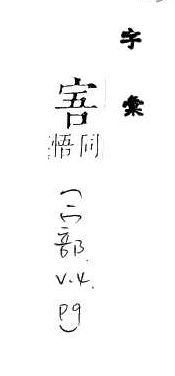 字彙
同悟
(宀部 V.4. P9)